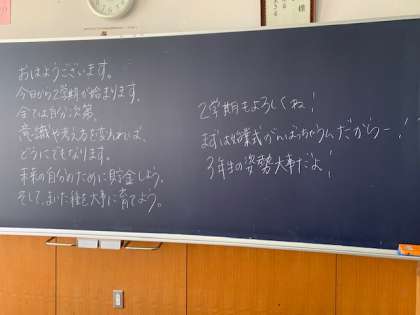 おはようございます。
今日から2学期が始まります。
全ては自分次第。
意識や考え方を変えれば、
どうにでもなります。
未来の自分のために貯金しよう。
そして、まいた種を大事に育てよう。
2学期もよろしくね!
まずは始業式がんばっちゃうんだからー!
3年生の姿勢大事だよ!